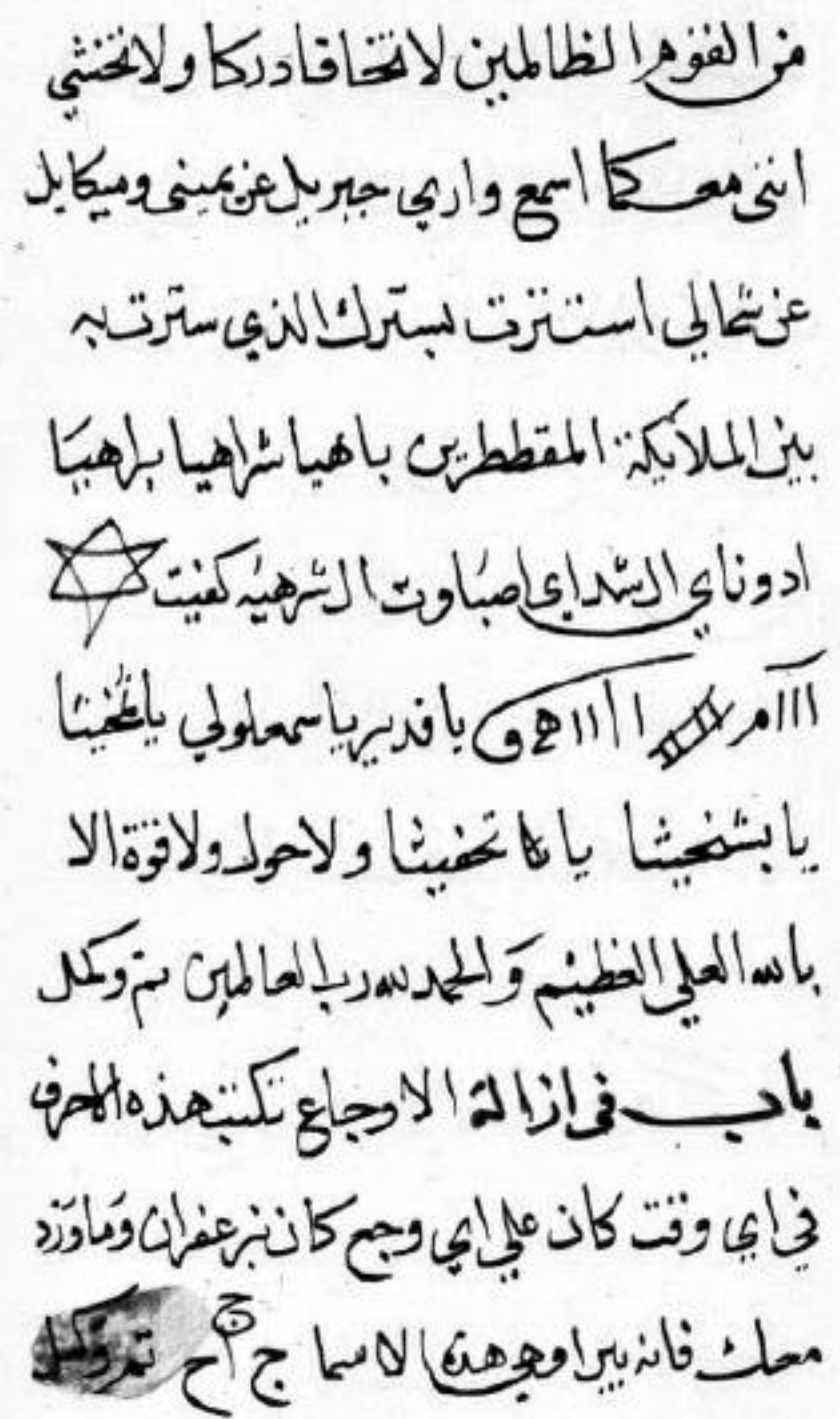 من القوم الظالمين لا تخافا دركا ولا تخشي
انني معكما اسمع واري جبريل عن يميني وميكايل
عن شمالي استترت بسترك الذي سترت به
بين الملايكة المقططرين باهيا شراهيا براهيا
ادوناي الشداي اصباوت ال شرهيه كفيت
يا قدير يا سمعلولي
يا بشخيثا يا ولا حول ولا قوة الا
بالله العلي العظيم والحمد لله رب العالمين تم وكمل
باب في ازالة الاوجاع تكتب هذه الاحرف
في اي وقت كان علي اي وجع كان بزعفران وماورد
معك فانه يبرا وهي هذه الاسما ج ح تم وكمل